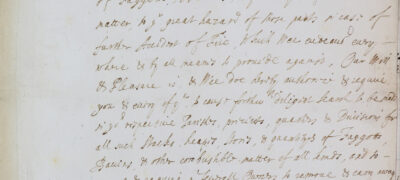 matter to yͤ great hazard of those parts in case of
further Accident of Fire, Which Wee endeavoͬ every
where & by all meanes to provide against, Our Will
& Pleasure is, & Wee doe hereby authorize & require
you & every of yoͧ to cause forthwᵗʰ diligent search to be made
in yoͬ respective Parishes, precincts, quarters & Divisions for
all such Stacks, heapes, Stores, & quantityes of Faggotts,
Bavins, & other combustible matter of all kinds, and to
require yͤ severall Owners to remove & carry away